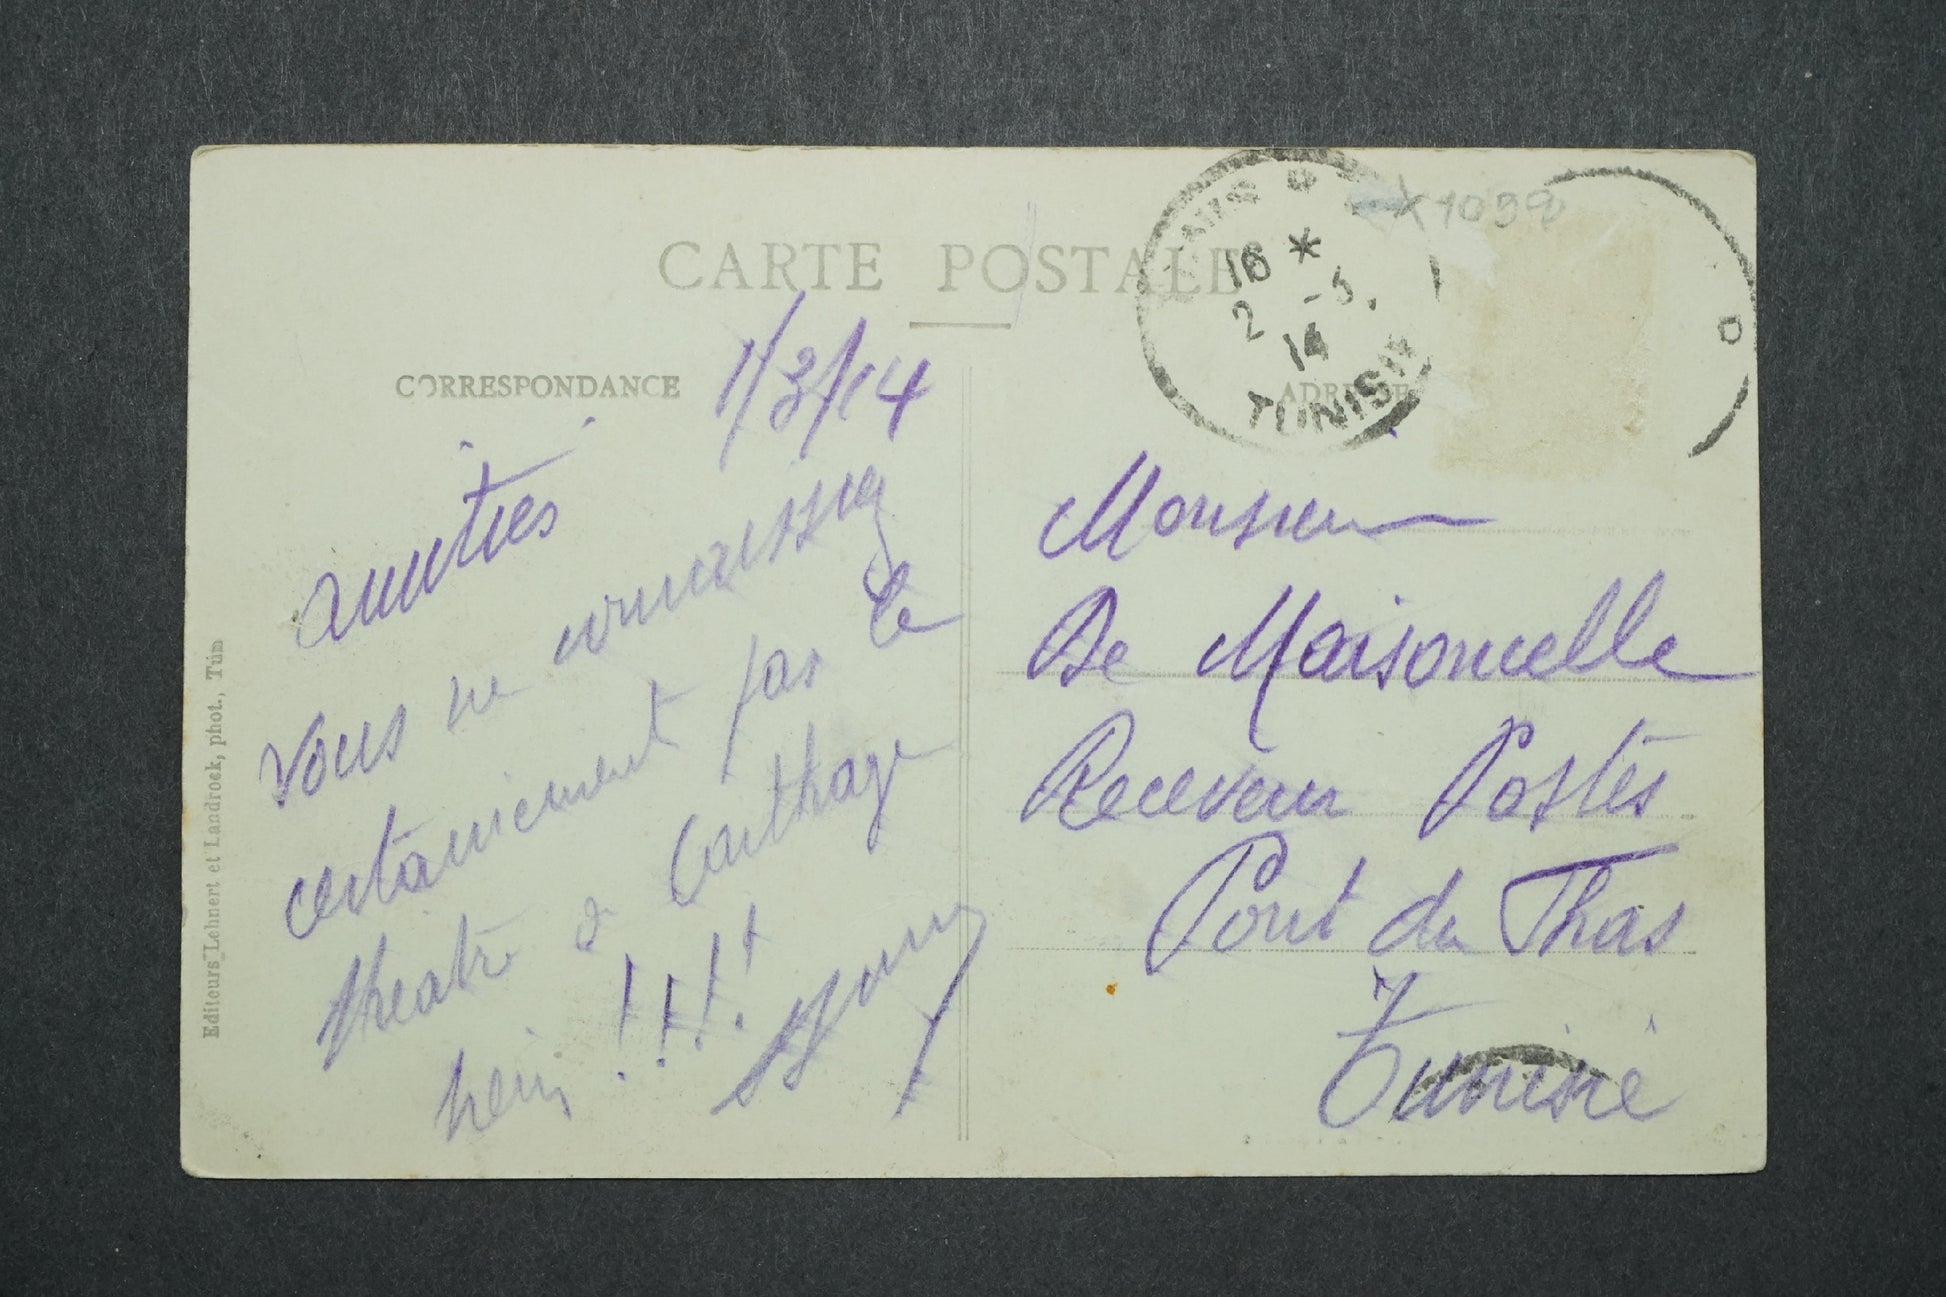 CARTE POSTALE
CORRESPONDANCE
1/3/14
amitiés
Vous ne connaissez
certainement pas le
théatre à Carthage
hein !!!!
Editeurs Lehnert et Landrock, phot., Tunis
16 *
2 -3.
14
TUNISIE
X 1098
ADRESSE
Monsieur
De Maisoncelle
Receveur Postes
Pont du Thas
Tunisie